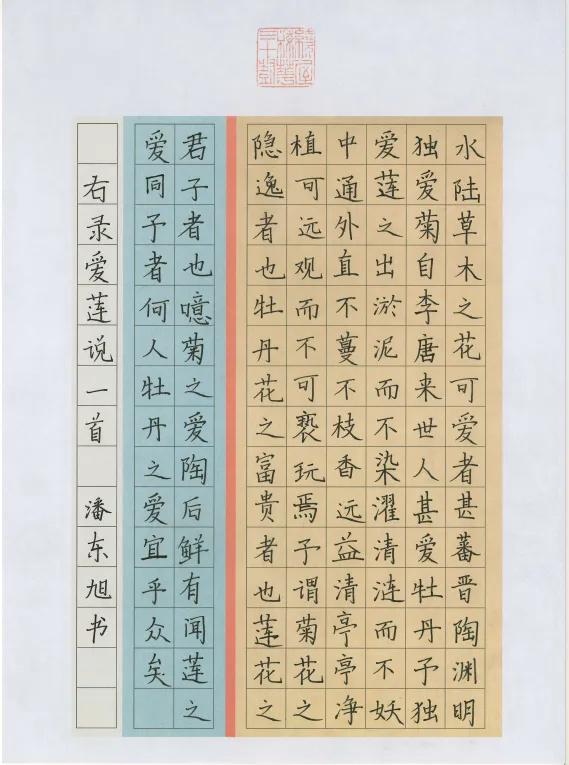 水陆草木之花可爱者甚蕃晋陶渊明
独爱菊自李唐来世人甚爱牡丹予独
爱莲之出淤泥而不染濯清涟而不妖
中通外直不蔓不枝香远益清亭亭净
植可远观而不可亵玩焉予谓菊花之
隐逸者也牡丹花之富贵者也莲花之
君子者也噫菊之爱陶后鲜有闻莲之
爱同予者何人牡丹之爱宜乎众矣
右录爱莲说一首 潘东旭书